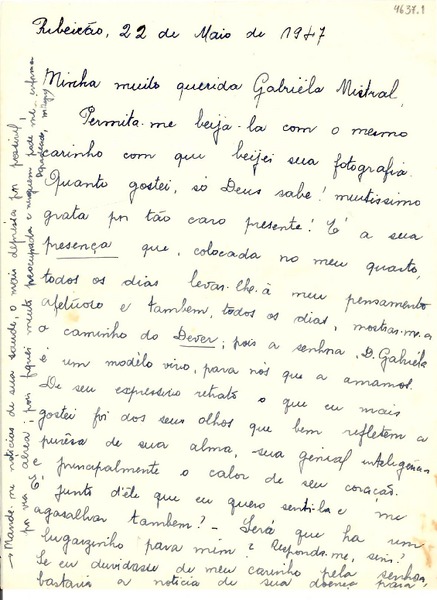 4637.1
Ribeirão, 22 de Maio de 1947
Minha muito querida Gabriéla Mistral,
Permita-me beija-la com o mesmo
carinho com que beijei sua fotografia.
Quanto gostei, só Deus sabe! muitissimo
grata por tão caro presente! É a sua
presença que, colocada no meu quarto,
todos os dias levar-lhe-á meu pensamento
afetuoso e tambem, todos os dias, mostrar-me-a
o caminho do Dever; pois a senhora, D. Gabriéla
é um modêlo vivo, para nós que a amamos.
De seu expressivo retrato o que eu mais
gostei foi dos seus olhos que bem refletem a
purêsa de sua alma, sua genial inteligencia
e principalmente o calor de seu coração.
Junto d'êle que eu quero senti-la e me
agasalhar tambem? - Será que ha um
lugarzinho para mim? Responda-me, sim?
Se eu duvidasse de meu carinho pela senhora,
bastaria a noticia de sua doença para
→ Mande-me noticias de sua saude, o mais depressa por possivel
por via aérea; pois fiquei muito preocupada e ninguem pode me informar